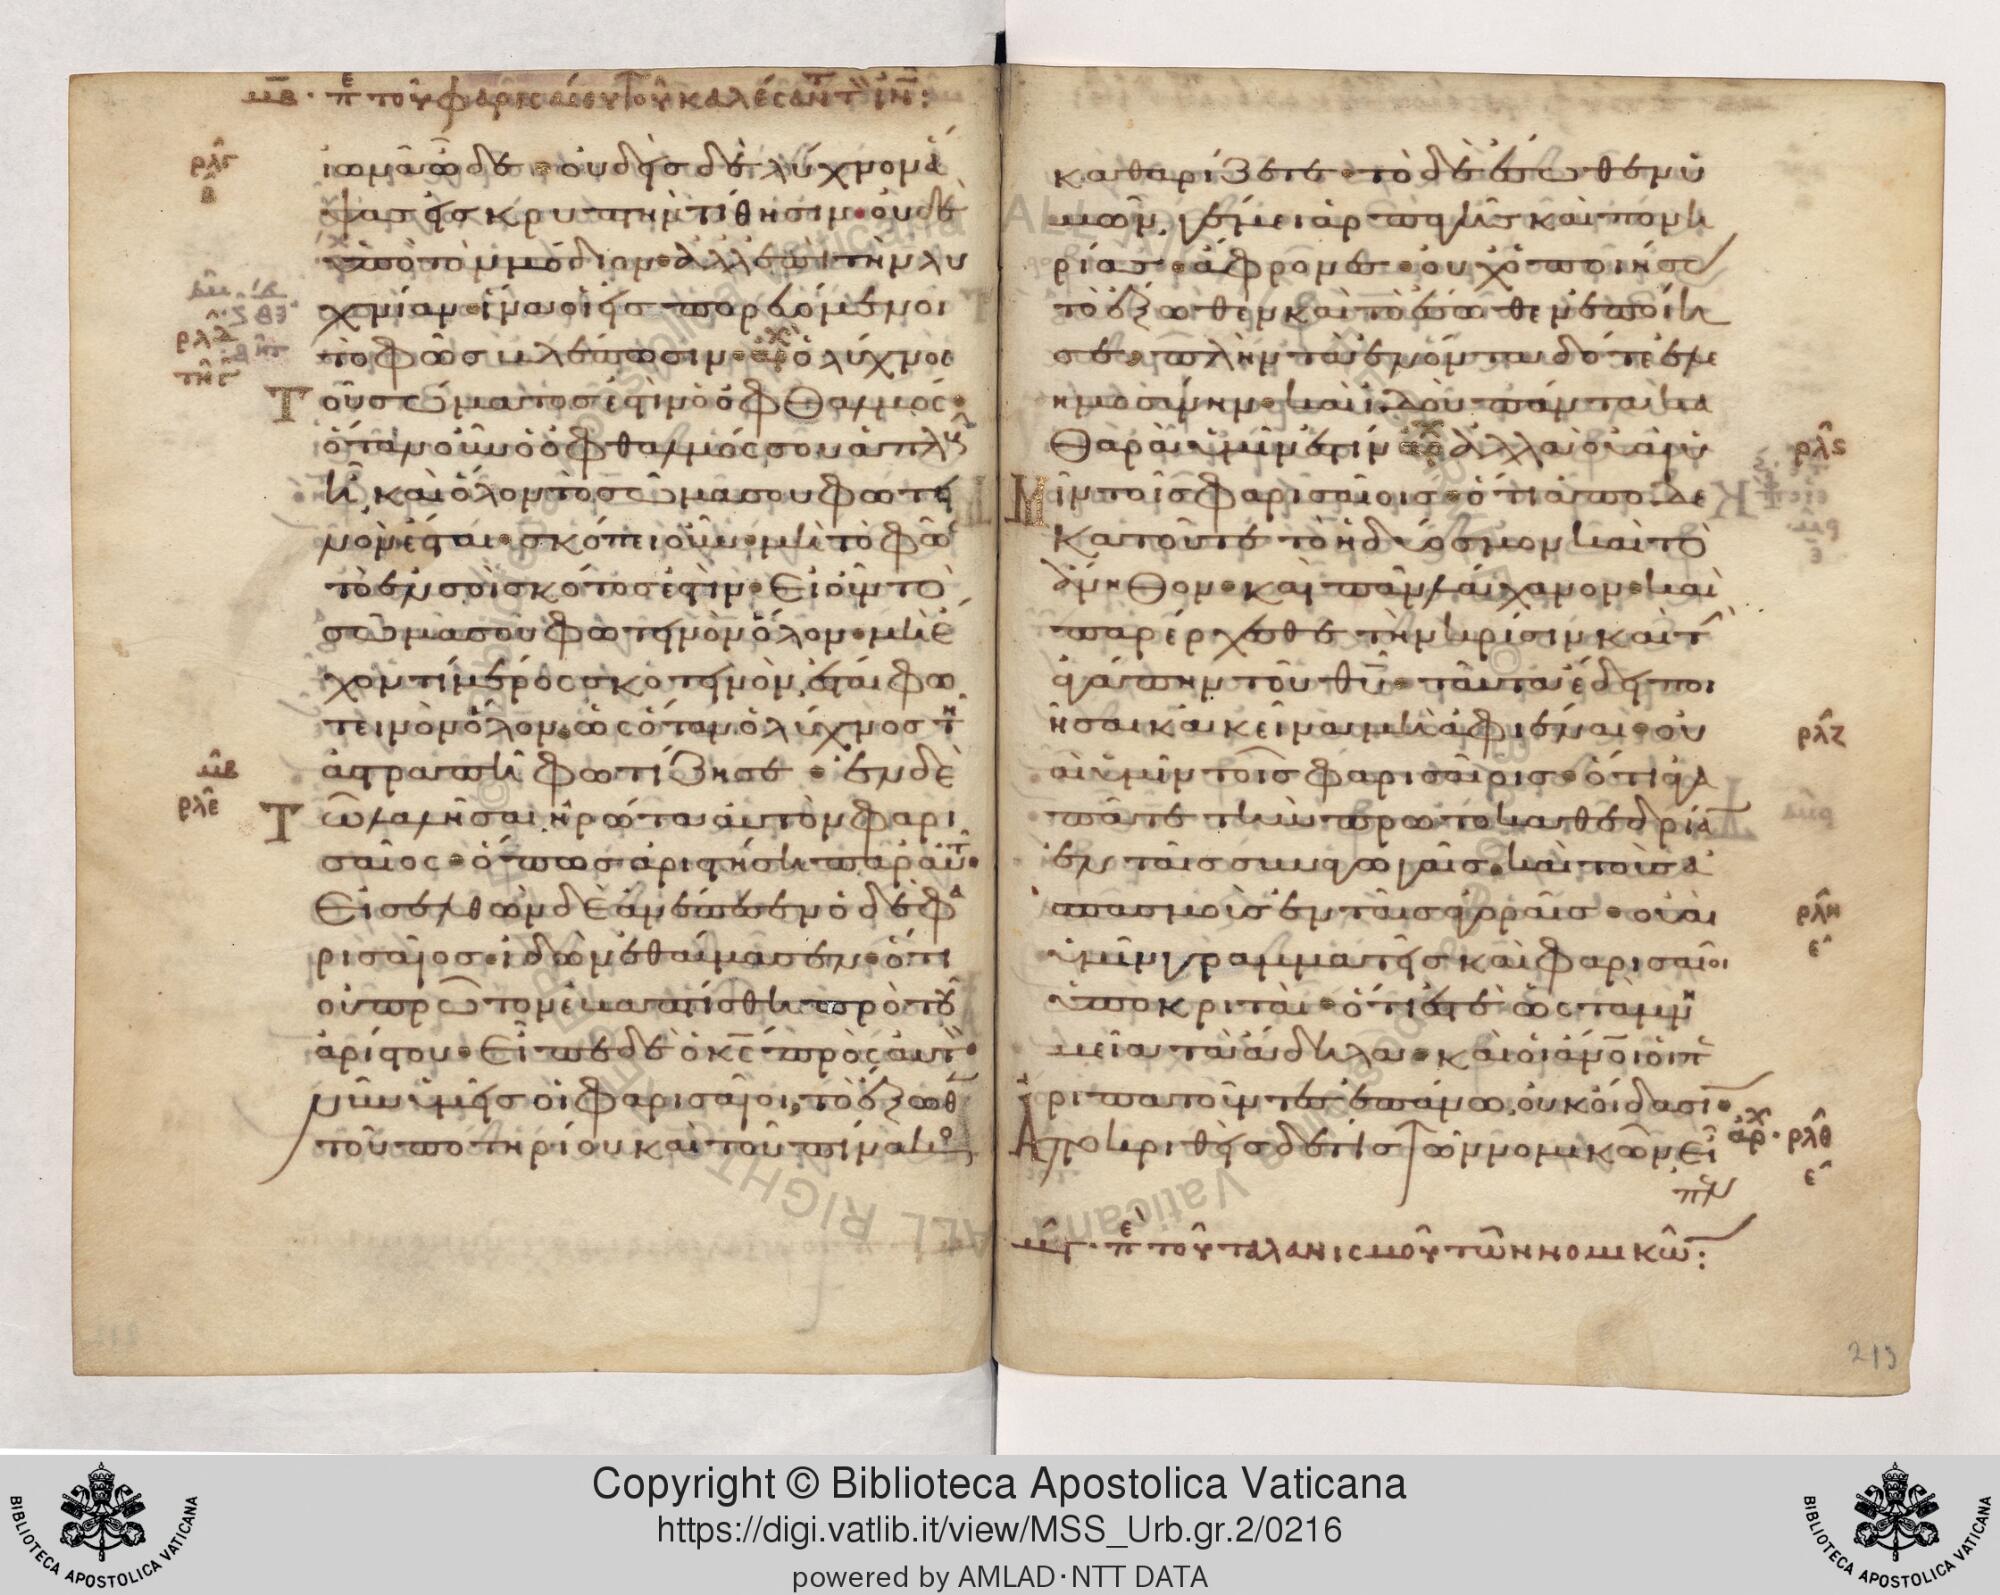 μβ · πε τοῦ φαρισαίου τοῦ καλέσαντ τ ιν :
ρλγ
β
ἰωνᾶ ὧδε · οὐδεὶς δὲ λύχνον ἅ
ψας εἰς κρυπτὴν τίθησιν · οὐδὲ
ὑπὸ τὸν μόδιον · ἀλλ' ἐπὶ τὴν λυ
χνίαν · ἵνα οἱ εἰσπορευόμενοι
ρλδ
τὸ φῶς βλέπωσιν · αρχ ὁ λύχνος
Τοῦ σώματός ἐστιν ὁ ὀφθαλμός ·
ὅταν οὖν ὁ ὀφθαλμός σου ἁπλοῦς
ἦ, καὶ ὅλον τὸ σῶμα σου φωτει
νόν ἐσται · σκόπει οὖν · μὴ τὸ φῶς
τὸ ἐν σοὶ σκότος ἐστίν · Εἰ οὖν τὸ
σῶμα σου φωτεινὸν ὅλον · μὴ ἔ
χον τι μέρος σκοτεινὸν, ἔσται φω
τεινὸν ὅλον, ὡς ὅταν ὁ λύχνος τῆ
μβ
ἀστραπῆ φωτίζη σε · ἐν δὲ
ρλε
Τῶ λαλῆσαι ἠρώτα αὐτὸν φαρι
σαῖος · ὅπως ἀριστήση παρ' αὐτ ·
Εἰσελθὼν δὲ ἀνέπεσεν ὁ δὲ φα
ρισαῖος · ἰδὼν ἐθαύμασεν · ὅτι
οὐ πρῶτον ἐβαπτίσθη πρὸ τοῦ
ἀρίστου · Εἶπε δὲ ὁ κς πρὸς αὐτ ·
νῦν ὑμεῖς οἱ φαρισαῖοι, τὸ ἔξωθ
τοῦ ποτηρίου καὶ τοῦ πίνακο
καθαρίζετε · τὸ δὲ ἔσωθεν ὑ
μῶν, γέμει ἁρπαγῆς καὶ πονη
ρίας · ἄφρονες · οὐχ ὁ ποιήσας
τὸ ἔξωθεν καὶ τὸ ἔσωθεν ἐποίη
σε · πλὴν τὰ ἐνόντα δότε ἐλε
ημοσύνην · καὶ ἰδοὺ πάντα κα
θαρὰ ὑμῖν ἐστιν αρχ ἀλλὰ οὐαὶ ὑ
ρλς
Μῖν τοῖς φαρισαίοις · ὅτι ἀποδε
κατοῦτε τὸ ἡδύοσμον καὶ τὸ
ἄνηθον · καὶ πᾶν λάχανον · καὶ
παρέρχεσθε τὴν κρίσιν καὶ τὴν
ἀγάπην τοῦ θυ · ταῦτα ἔδει ποι
ῆσαι κἀκεῖνα μὴ ἀφιέναι · οὐ
ρλζ
αὶ ὑμῖν τοῖς φαρισαίοις · ὅτι ἀγα
πᾶτε τὴν πρωτοκαθεδρίαν
ἐν ταῖς συναγωγαῖς · καὶ τοὺς ἀ
σπασμοὺς ἐν ταῖς ἀγοραῖς · οὐαὶ
ρλη
ε
ὑμῖν γραμματεῖς καὶ φαρισαῖοι
ὑποκριταὶ · ὅτι ἐστὲ ὡς τὰ μνη
μεῖα τὰ ἄδηλα · καὶ οἱ ἄνοι οἱ πε
ριπατοῦντες ἐπάνω, οὐκ οἴδασι ·
αρχ · ρλθ
ε
Ἀποκριθεὶς δέ τις τῶν νομικῶν εἶ
πεν
μγ · πε τοῦ ταλανισμοῦ τῶν νομικῶ :
213
Copyright © Biblioteca Apostolica Vaticana
https://digi.vatlib.it/view/MSS_Urb.gr.2/0216
powered by AMLAD·NTT DATA
BIBLIOTECA APOSTOLICA VATICANA
BIBLIOTECA APOSTOLICA VATICANA